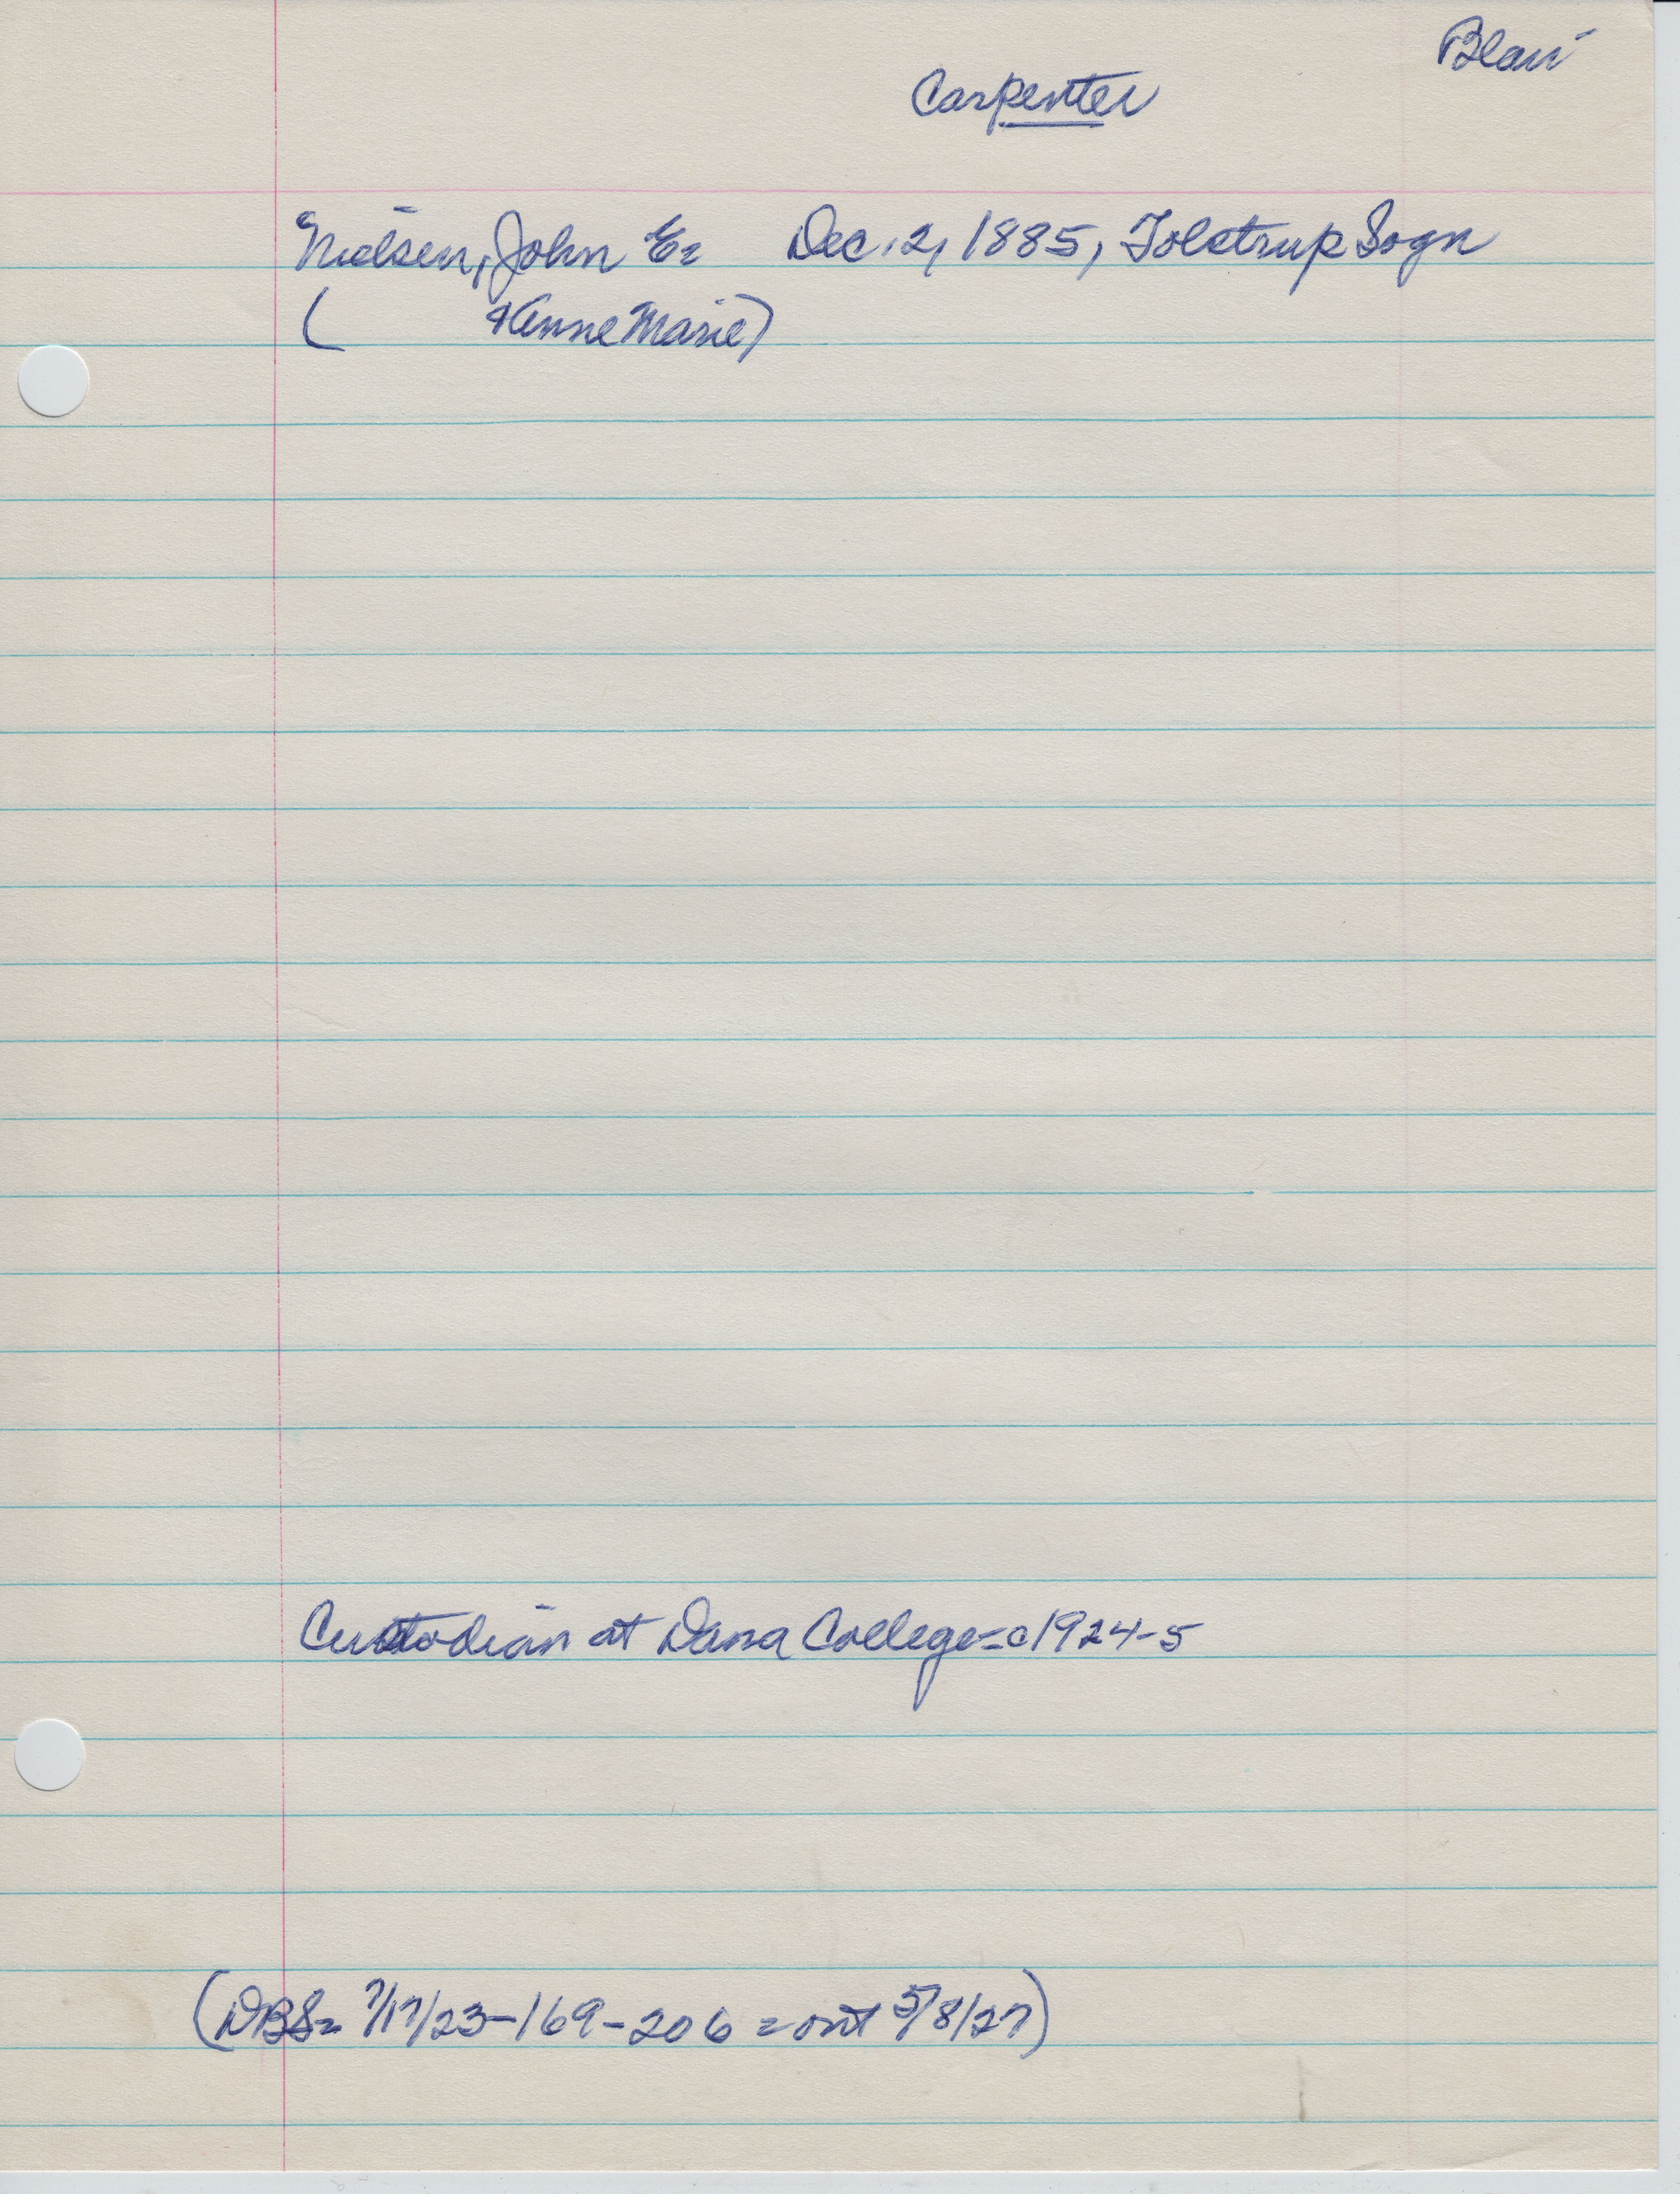 Blair
Carpenter
Nielsen, John E= Dec. 2, 1885, Tolstrup Sogn
( + Anne Marie)
Custodian at Dana College = c1924-5
(DBS= 7/17/23-169-206 = out 5/8/27)